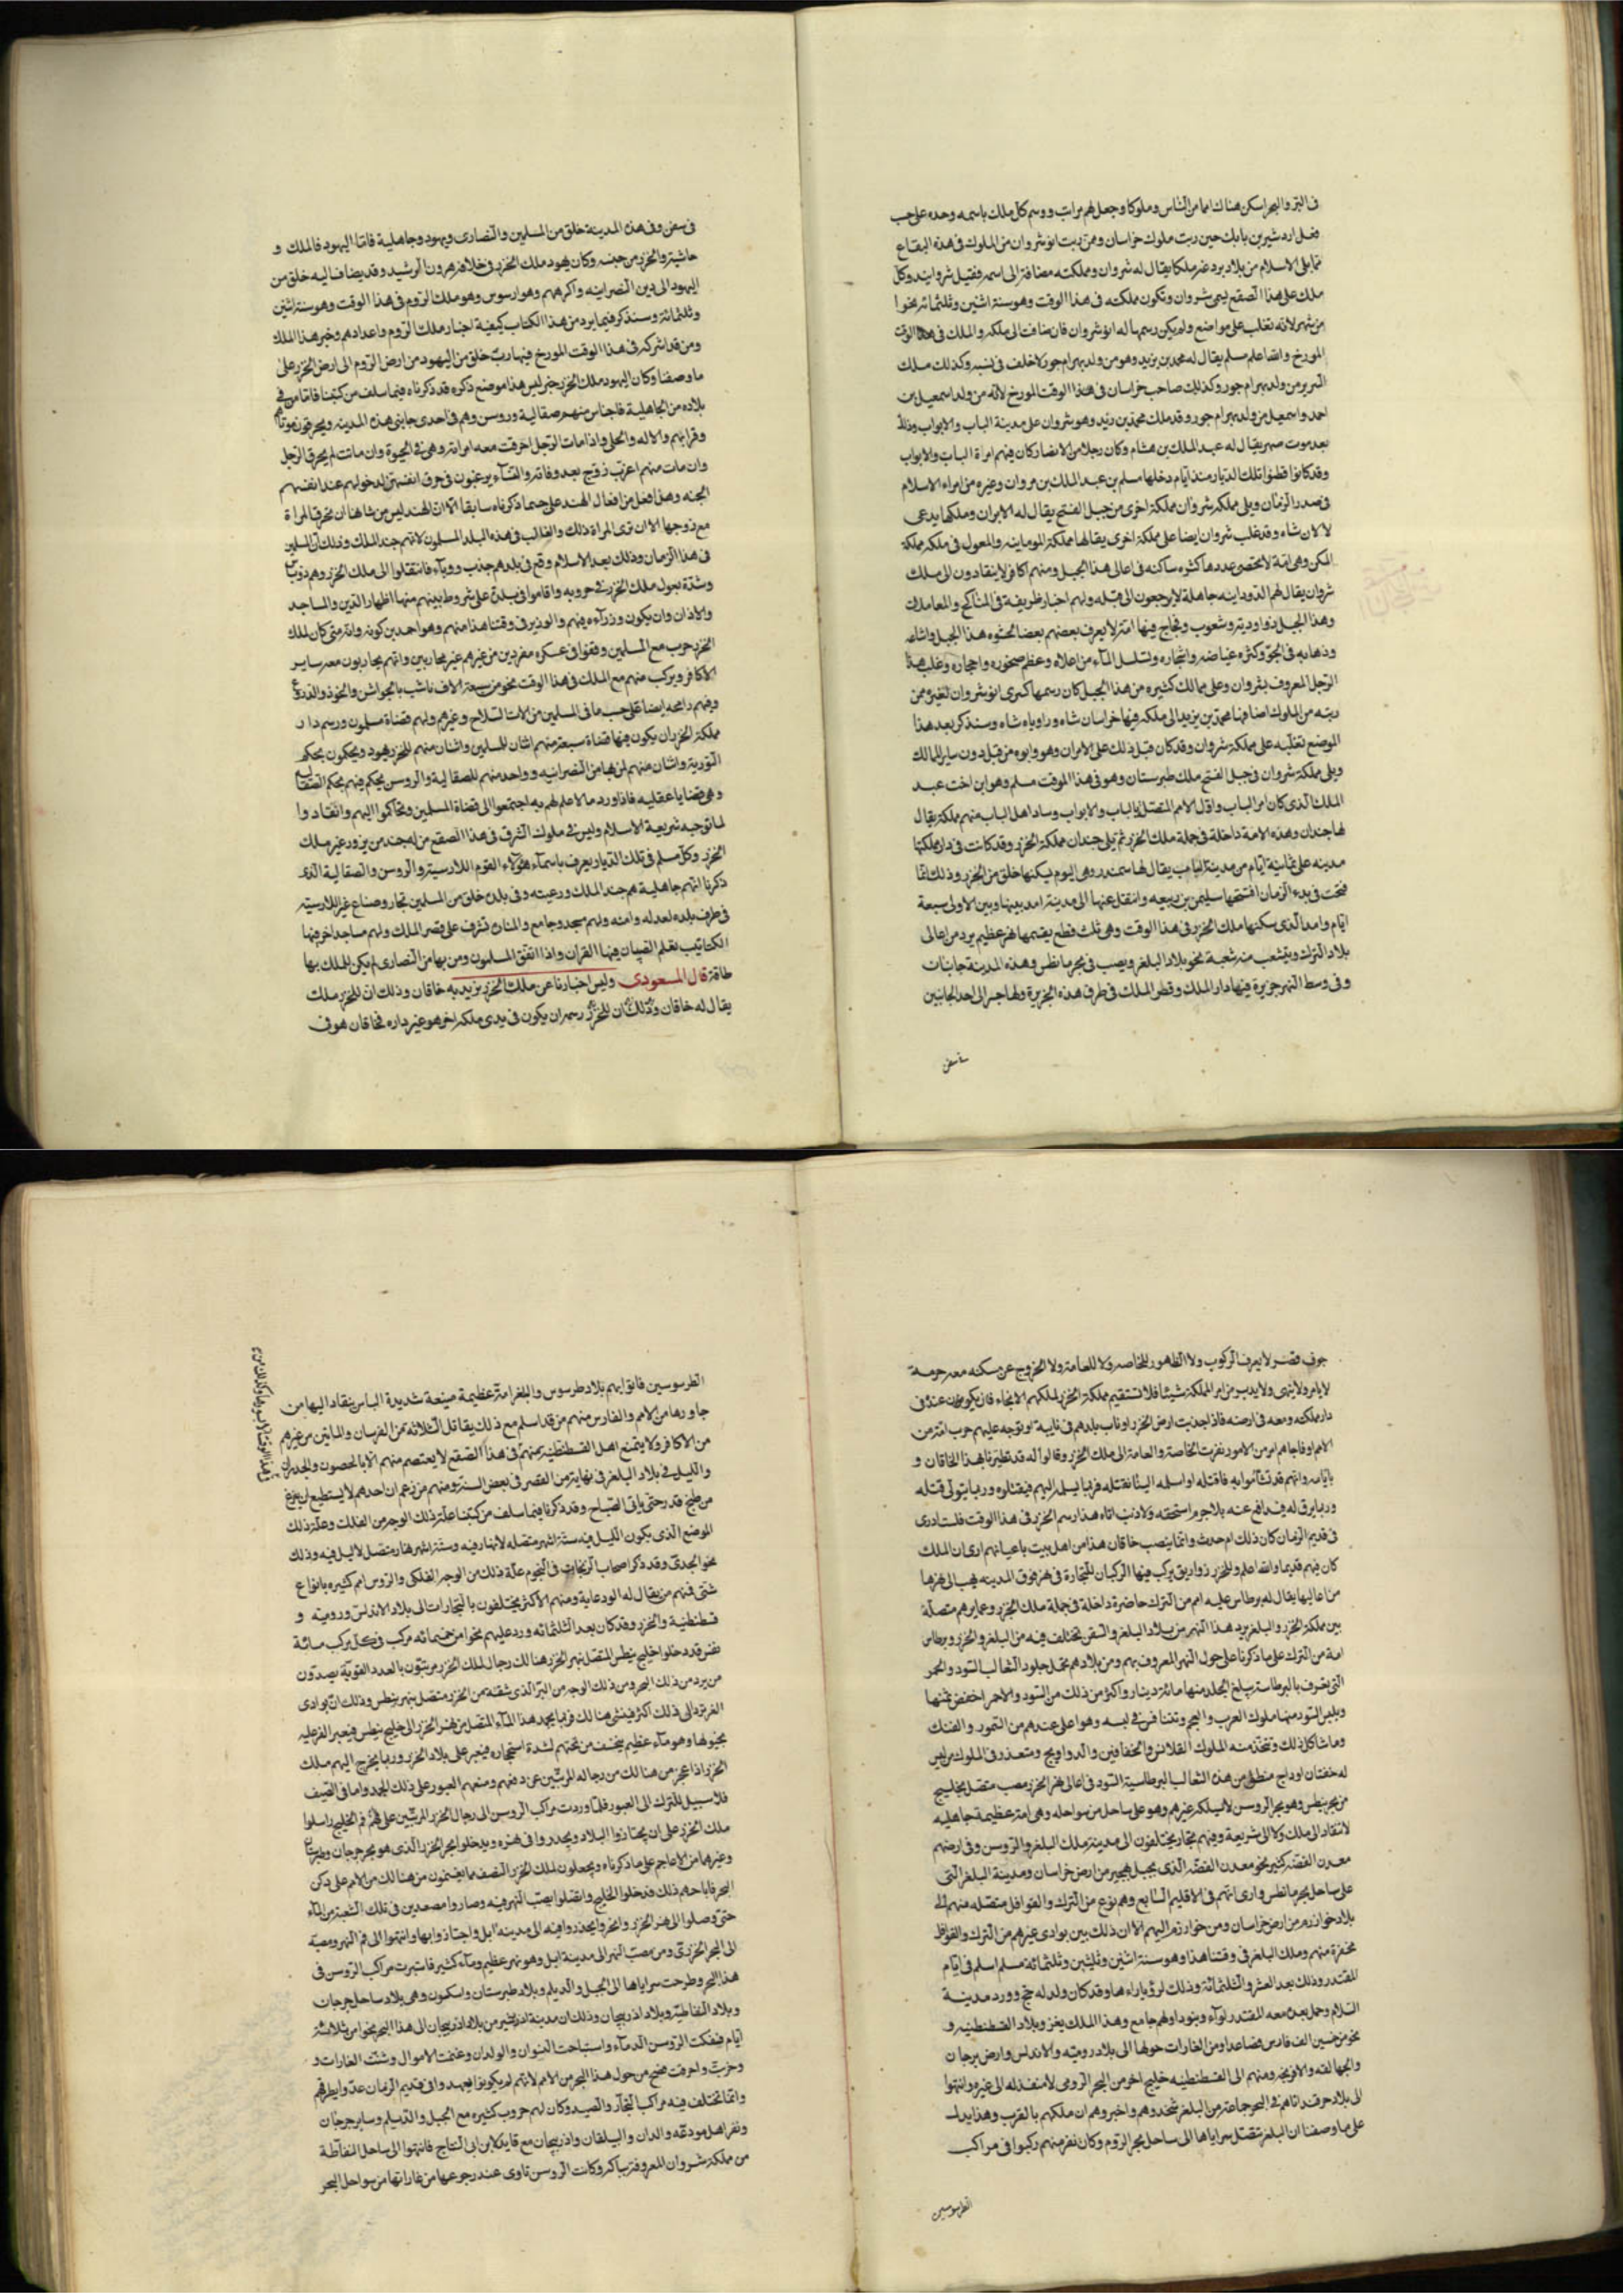 فى البر والبحر اسكن هناك امما من الناس وملوكا وجعل لهم مراتب ووسم كل ملك باسمه وحده على حسب
فعل اردشير بن بابك حين رتب ملوك خراسان وممن رتب انوشروان من الملوك فى هذه البقاع
مما يلى الاسلام من بلاد بردعه ملكا يقال له شروان ومملكته مضافة الى اسمه فقيل شروانيه وكل
ملك على هذا الصقع يسمى شروان وتكون مملكته فى هذا الوقت وهو سنة اثنين وثلثمائة نحوا
من شهر لانه تغلب على مواضع ولم يكن رسمها له انوشروان فانضافت الى ملكه والملك فى هذا الوقت
المورخ والله اعلم مسلم يقال له محمد بن يزيد وهو من ولد بهرام جور لا خلف فى نسبه وكذلك ملك
السرير من ولد بهرام جور وكذلك صاحب خراسان فى هذا الوقت المورخ لانه من ولد اسمعيل بن
احمد واسمعيل من ولد بهرام جور وقد ملك محمد بن يزيد وهو شروان على مدينة الباب والابواب وذلك
بعد موت صهر يقال له عبد الملك بن هشام وكان رجلا من الانصار كان فيهم امراة الباب والابواب
وقد كانوا قطنوا تلك الديار منذ ايام دخلها مسلم بن عبد الملك بن مروان وغيره من امراء الاسلام
فى صدر الزمان ويلى مملكة شروان مملكة اخرى من جبل الفتح يقال له الايران وملكها يدعى
لالان شاه وقد غلب شروان ايضا على مملكة اخرى يقال لها مملكة الموماينه والمعول فى ملكه مملكة
المكن وهى امة لا تحصى عددها كثره ساكنه فى اعالى هذا الجبل ومنهم اكافر لا ينقادون الى ملك
شروان يقال لهم الدودانيه جاهلة لا يرجعون الى قبله ولهم اخبار ظريفة فى المناكح والمعاملات
وهذا الجبل ذو اودية وشعوب وفجاج فيها امة لا يعرف بعضهم بعضا لخشونة هذا الجبل واشاعه
وذهابه فى الجو وكثره غياضه واشجاره وتسلسل المآء من اعلاه وعظم صخوره واحجاره وغلب هذا
الرجل المعروف بشروان وعلى ممالك كثيره من هذا الجبل كان رسمها كسرى انوشروان لغيره ممن
رتبه من الملوك اضافها محمد بن يزيد الى ملكه فيها خراسان شاه وزاوباه شاه وسنذكر بعد هذا
الموضع تغلبه على مملكة شروان وقد كان قبل ذلك على الايران وهو وابوه من قبل دون ساير الممالك
ويلى مملكة شروان فى جبل الفتح ملك طبرستان وهو فى هذا الوقت مسلم وهو ابن اخت عبد
الملك الذى كان امر الباب واول الامم المتصل بالباب والابواب وساد اهل الباب منهم مملكة يقال
لها جندان وهذه الامة داخلة فى جملة ملك الخزر ثم يلى جندان مملكة الخزر وقد كانت فى دار مملكتها
مدينه على ثمانية ايام من مدينة الباب يقال لها سمندر وهى اليوم يسكنها خلق من الخزر وذلك انما
فتحت فى بدء الزمان افتتحها سليمن بن ربيعه وانتقل عنها الى مدينة امد بينها وبين الاولى سبعة
ايام وامد الذى سكنها ملك الخزر فى هذا الوقت وهى ثلث قطع يقسمها نهر عظيم يرد من اعالى
بلاد الترك ويتشعب منه شعبة نحو بلاد البلغر ويصب فى بحر مانطس وهذه المدينة جانبان
وفى وسط النهر جزيرة فيها دار الملك وقصر الملك فى طرف هذه الجزيرة ولها جسر الى احد الجانبين
من سفن
فى سفن وفى هذه المدينة خلق من المسلمين والنصارى ويهود وجاهلية فاما اليهود فالملك و
حاشيته والخزر من جنسه وكان يهود ملك الخزر فى خلافة هرون الرشيد وقد يضاف اليه خلق من
اليهود الى دين النصرانيه واكرههم وهو ارسوس وهو ملك الروم فى هذا الوقت وهو سنة اثنين
وثلثمائة وسنذكر فيما يرد من هذا الكتاب كيفية اخبار ملك الروم واعدادهم وخبر هذا الملك
ومن قد اشركه فى هذا الوقت المورخ فيها رب خلق من اليهود من ارض الروم الى ارض الخزر على
ما وصفنا وكان اليهود ملك الخزر خبر ليس هذا موضع ذكره قد ذكرناه فيما سلف من كتبنا فاما من فى
بلاده من الجاهلية فاجناس منهم صقالبة وروسن وهم فى احدى جانبى هذه المدينه ويحرقون موتاهم
وقرابهم والاله والحلى واذا مات الرجل احرقت معه امراته وهى فى الحيوة وان ماتت لم يحرق الرجل
وان مات منهم اعزب زوج بعد وفاته والنسآء يرغبون فى حرق انفسهن لدخولهم عند انفسهم
الجنه وهذا فعل من افعال الهند على حسب ما ذكرناه سابقا الا ان الهند ليس من شانها ان تحرق المراة
مع زوجها الا ان ترى المراة ذلك والغالب فى هذه البلد المسلمون لانهم جند الملك وذلك ان المسلمين
فى هذا الزمان وذلك بعد الاسلام وقع فى بلدهم جذب ووبآء فانتقلوا الى ملك الخزر وهم ذو باس
وشدة يعول ملك الخزر فى حروبه واقاموا فى بلده على شروط بينهم منها اظهار الدين والمساجد
والاذان وان يكون وزرآءه فيهم والوزير فى وقتنا هذا منهم وهو احمد بن كونه وانه متى كان لملك
الخزر حرب مع المسلمين وقفوا فى عسكره مفردين من غيرهم غير محاربين وانهم يحاربون معه ساير
الاكافر ويركب منهم مع الملك فى هذا الوقت نحو من سبعة الاف ناشب بالجواشن والخوذ والدروع
وفيهم رامحه ايضا على حسب ما فى المسلمين من الات السلاح وغيرهم ولهم قضاة مسلمون ورسم دار
مملكة الخزر ان يكون فيها قضاة سبعة منهم اثنان للمسلمين واثنان منهم للخزر يهود ويحكمون بحكم
التورية واثنان منهم لمن بها من النصرانيه وواحد منهم للصقالبة والروسن يحكم فيهم بحكم الصقالب
وهى قضايا عقليه فاذا ورد ما لا علم لهم به اجتمعوا الى قضاة المسلمين وتحاكموا اليهم وانقادوا
لما توجبه شريعة الاسلام وليس فى ملوك الشرق فى هذا الصقع من له جند من يزور غير ملك
الخزر وكل مسلم فى تلك الديار يعرف باسمآء هؤلاء القوم اللارسية والروسن والصقالبة الذى
ذكرنا انهم جاهلية هم جند الملك ورعيته وفى بلده خلق من المسلمين تجار وصناع غير اللارسيه
فى طرف بلده لعدله وامنه ولهم مسجد جامع والمنارة تشرف على قصر الملك ولهم مساجد اخر فيها
الكتاتيب بتعلم الصبيان فيها القران واذا اتفق المسلمون ومن بها من النصارى لم يكن للملك بها
طاقة قال المسعودى وليس اخبارنا عن ملك الخزر نريد به خاقان وذلك ان للخزر ملك
يقال له خاقان وذلك ان للخزر رسم ان يكون فى يدى ملكه اخر هو غير داره فخاقان هو فى
جوف قصر لا يعرف الركوب ولا الظهور للخاصه ولا للعامة ولا الخروج عن مسكنه معه حرمه
لا يامر ولا ينهى ولا يدبر من امر المملكة شيئا فلا تستقيم مملكة الخزر لملكهم الا بخاقان يكون عنده فى
دار ملكه ومعه فى ارضه فاذا اجدبت ارض الخزر او ناب بلدهم فى نايبة او توجه عليهم حرب امة من
الامم او فاجاهم امر من الامور نفرت الخاصة والعامة الى ملك الخزر وقالوا له قد تطيرنا بهذا الخاقان و
بايامه وانهم قد تشآموا به فاقتله او اسلمه الينا نقتله فربما يسلمه اليهم فيقتلوه وربما يتولى قتله
وربما يرق له فيدافع عنه بلا جرم استحقه ولا ذنب اتاه هذا رسم الخزر فى هذا الوقت فلست ادرى
فى قديم الزمان كان ذلك ام حدث وانما ينصب خاقان هذا من اهل بيت باعيانهم ارى ان الملك
كان فيهم قديما والله اعلم وللخزر زواريق يركب فيها الركبان للتجارة فى نهر فوق المدينه يصب الى نهرها
من اعاليها يقال له برطاس عليه امم من الترك حاضرة داخلة فى جملة ملك الخزر وعمايرهم متصلة
بين مملكة الخزر والبلغر يرد هذا النهر من بلاد البلغر والسفن تختلف فيه من البلغر والخزر وبرطاس
امة من الترك على ما ذكرنا على حول النهر المعروف بهم ومن بلادهم تحمل جلود الثعالب السود والحمر
التى تعرف بالبرطاسية يبلغ الجلد منها مائة دينار واكثر من ذلك من السود والاحمر اخفض ثمنها
ويلبس السود منها ملوك العرب والعجم وتتنافس فى لبسه وهو اعلى عندهم من السمور والفنك
وما شاكل ذلك وتتخذ منه الملوك القلانس والخفافين والدواويج ومتعذر فى الملوك من ليس
له خفتان او دواج مبطن من هذه الثعالب البرطاسية السود فى اعالى نهر الخزر مصب متصل بخليج
من بحر نيطس وهو بحر الروسن لا يسلكه غيرهم وهو على ساحل من سواحله وهى امة عظيمة جاهليه
لا تنقاد الى ملك ولا الى شريعة وفيهم تجار يختلفون الى مدينة ملك البلغر والروسن وفى ارضهم
معدن الفضه كثير نحو معدن الفضة الذى بجبل بنجهير من ارض خراسان ومدينة البلغر التى
على ساحل بحر مانطس وارى انهم فى الاقليم السابع وهم نوع من الترك والقوافل متصله منهم الى
بلاد خوارزم من ارض خراسان ومن خوارزم اليهم الا ان ذلك بين بوادى غيرهم من الترك والقوافل
مخفرة منهم وملك البلغر فى وقتنا هذا وهو سنة اثنين وثلثين وثلثمائة مسلم اسلم فى ايام
المقتدر وذلك بعد العشر والثلثمائة وذلك لرؤيا راءها وقد كان ولد له حج وورد مدينة
السلام وحمل بعده معه المقتدر لوآء وبنودا ولهم جامع وهذا الملك يغزو بلاد القسطنطنيه و
نحو من خمسين الف فارس فصاعدا ومن الغارات حولها الى بلاد روميه والاندلس وارض برجان
والجهالقه والافرنجه ومنهم الى القسطنطنيه خليج اخر من البحر الرومى لا منفذ له الى غيره وانتهوا
الى بلاد حرقد اتاهم فى البحر جماعة من البلغر ينجدوهم واخبروهم ان ملكهم بالقرب وهذا يدل
على ما وصفنا ان البلغر تتصل سراياها الى ساحل بحر الروم وكان نفر منهم ركبوا فى مراكب
الطرسوسين
الطرسوسين فاتوا بهم بلاد طرسوس والبلغر امة عظيمة منيعة شديدة الباس ينقاد اليها من
جاورها من الامم والفارس منهم من قد اسلم مع ذلك يقاتل الثلاثة من الفرسان والمايتين من غيرهم
من الاكافر ولا يمتنع اهل القسطنطنيه منهم فى هذا الصقع لا يعتصم منهم الا بالحصون والجدران
والليل فى بلاد البلغر فى نهاية من القصر فى بعض السنة ومنهم من زعم ان احدهم لا يستطيع ان يفرغ
من طبخ قدر حتى ياتى الصباح وقد ذكرنا فيما سلف من كتبنا علة ذلك الوجه من الفلك وعلة ذلك
الموضع الذى يكون الليل فيه ستة اشهر متصله لا نهار فيه وستة اشهر نهار متصل لا ليل فيه وذلك
نحو الجدى وقد ذكر اصحاب الزيجات فى النجوم علة ذلك من الوجه الفلكى والروس امم كثيره بانواع
شتى فمنهم من يقال له الودعاية ومنهم الاكثر يختلفون بالتجارات الى بلاد الاندلس ورومية و
قسطنطنية والخزر وقد كان بعد الثلثمائه ورد عليهم نحوا من خمسمائه مركب فى كل مركب مائة
نفس قد دخلوا خليج نيطس المتصل بنهر الخزر هنالك رجال لملك الخزر مرتبون بالعدد القوية يصدون
من يرد من ذلك البحر ومن ذلك الوجه من البر الذى شقته من الخزر متصل بنهر نيطس وذلك ان بوادى
الغز ترد الى ذلك اكثر فيشتى هنالك فربما يجمد هذا المآء المتصل من نهر الخزر الى خليج نيطس فيعبر الغز عليه
بخيولها وهو مآء عظيم ينخسف من تحتهم لشدة استحجاره فيعبر على بلاد الخزر وربما يخرج اليهم ملك
الخزر اذا عجز من هنالك من رجاله المرتبين عن دفعهم ومنعهم العبور على ذلك الجمد واما فى الصيف
فلا سبيل للترك الى العبور فلما وردت مراكب الروسن الى رجال الخزر المرتبين على فم الخليج راسلوا
ملك الخزر على ان يجتازوا البلاد ويحدروا فى نهره ويدخلوا بحر الخزر الذى هو بحر جرجان وطبرستان
وغيرها من الاعاجم على ما ذكرناه ويجعلون لملك الخزر النصف مما يغنمون من هنالك من الامم على ذكر
البحر فاباحهم ذلك فدخلوا الخليج واتصلوا بمصب النهر فيه وصاروا مصعدين فى تلك الشعبة من المآء
حتى وصلوا الى نهر الخزر وانحدروا فيه الى مدينة ابل واجتازوا بها وانتهوا الى فم النهر ومصبه
الى البحر الخزرى ومن مصب النهر الى مدينة ابل وهو نهر عظيم ومآء كثير فانتشرت مراكب الروسن فى
هذا البحر وطرحت سراياها الى الجبل والديلم وبلاد طبرستان واسكون وهى بلاد ساحل جرجان
وبلاد النفاطة وبلاد اذربيجان وذلك ان مدينة اردبيل من بلاد اذربيجان الى هذا البحر نحوا من ثلاثة
ايام فسفكت الروسن الدمآء واستباحت النسوان والولدان وغنمت الاموال وشنت الغارات و
وخربت واحرقت فضج من حول هذا البحر من الامم لانهم لم يكونوا يعهدوا فى قديم الزمان عدوا يطرقهم
وانما تختلف فيه مراكب التجار والصيد وكان لهم حروب كثيره مع الجبل والديلم وساير جرجان
ونفر اهل بردعه والران والبيلقان واذربيجان مع قايد لابن ابى الساج فانتهوا الى ساحل النفاطة
من مملكة شروان المعروفة بباكه وكانت الروسن تاوى عند رجوعها من غاراتها من سواحل البحر